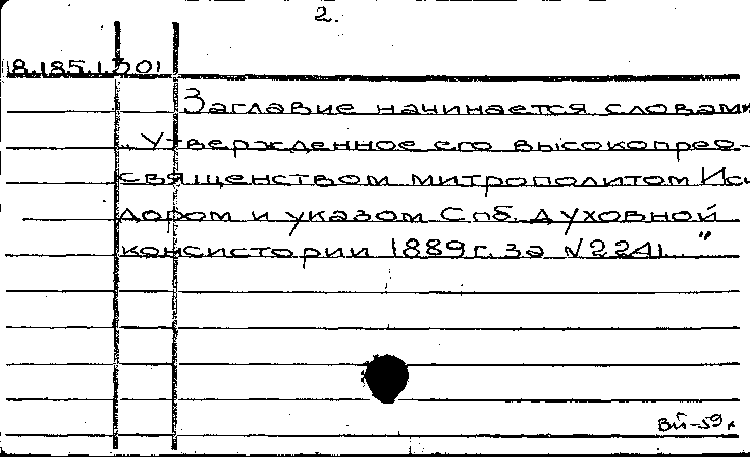 2.
18.185.1.501
Заглавие начинается словами
„Утвержденное его высокопрео-
священством митрополитом Иси
дором и указом Спб. духовной
консистории 1889г. за №2241..."